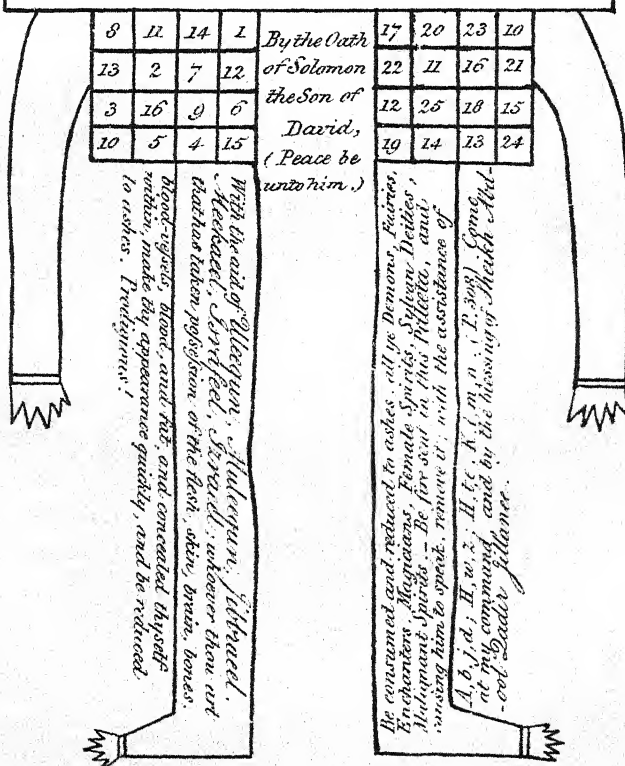 8 11 14 1
13 2 7 12
3 16 9 6
10 5 4 15
By the Oath
of Solomon
the Son of
David,
(Peace be
unto him.)
17 20 23 10
22 11 16 21
12 25 18 15
19 14 13 24
With the aid of Uleequn, Muleequn, Jibbraeel,
Meekaeel, Israfeel, Izraeel; whoever thou art
that has taken possession of the flesh, skin, brain, bones,
blood-vessels, blood, and fat, and concealed thyself
within, make thy appearance quickly, and be reduced
to ashes. Prodigious!
Be consumed and reduced to ashes, all ye Demons, Fairies,
Enchanters, Magicians, Female Spirits, Sylvan Deities,
Malignant Spirits. — Be in this and,
causing him to speak, remove it; with the assistance of
A, b, j, d; H, w, z; K l m n (P. 308) Come
at my command and by the blessing of Sheikh Abd-
-ool-Qadir Gillanee.